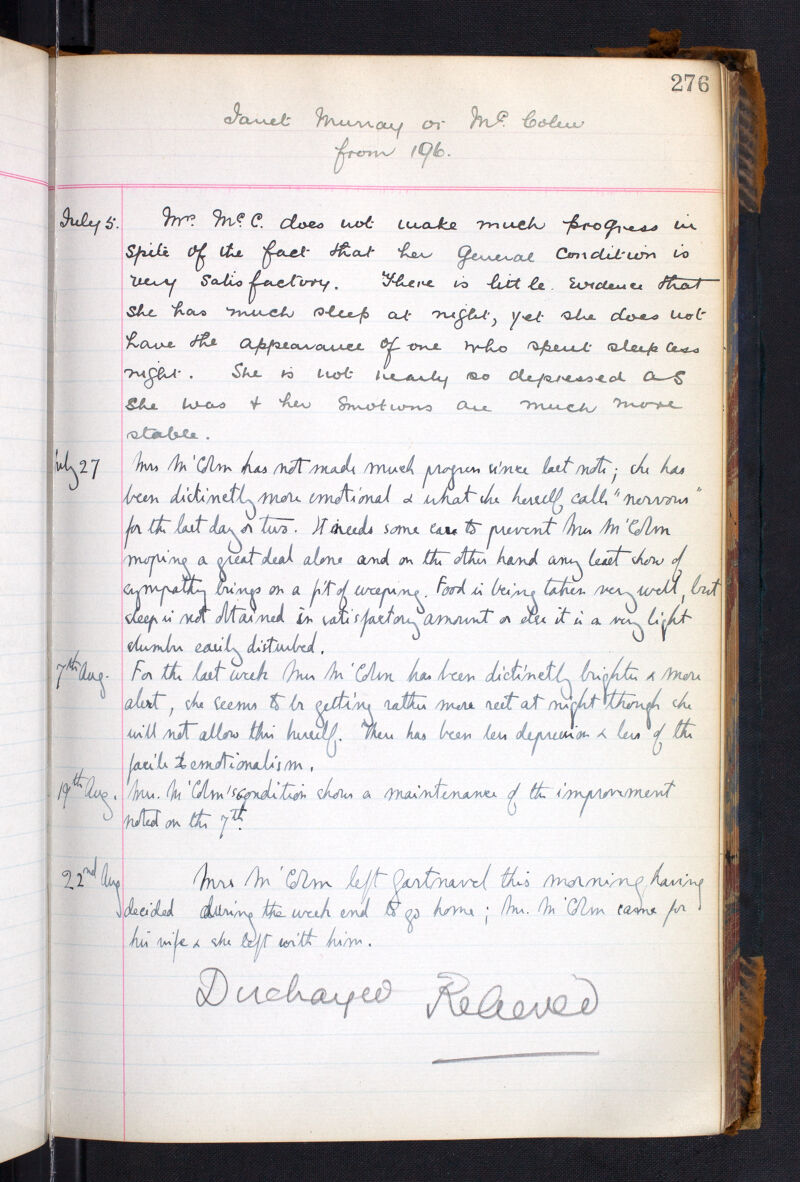 276
Janet Murray or Mc. Colm
from 196.
July 5. Mrs. Mc. C. does not make much progress in
spite of the fact that her general condition is
very satisfactory. There is little evidence that
she has much sleep at night, yet she does not
have the appearance of one who spent sleepless
night. She is not nearly so depressed as
she was & her emotions are much more
stable.
July 27 Mrs M'Colm has not made much progress since last note; she has
been distinctly more emotional & what she herself calls "nervous"
for the last day or two. It needs some care to prevent Mrs M'Colm
moping a great deal alone and on the other hand any least show of
sympathy brings on a fit of weeping. Food is being taken very well, but
sleep is not obtained in satisfactory amount or else it is a very light
slumber easily disturbed.
7th Aug. For the last week Mrs M'Colm has been distinctly brighter & more
alert, she seems to be getting rather more rest at night though she
will not allow this herself. There has been less depression & less of the
facile emotionalism.
19th Aug. Mrs. M'Colm's condition shows a maintenance of the improvement
noted on the 7th.
22nd Aug Mrs M'Colm left Gartnavel this morning having
decided during the week end to go home; Mr. M'Colm came for
his wife & she left with him.
Discharged Relieved